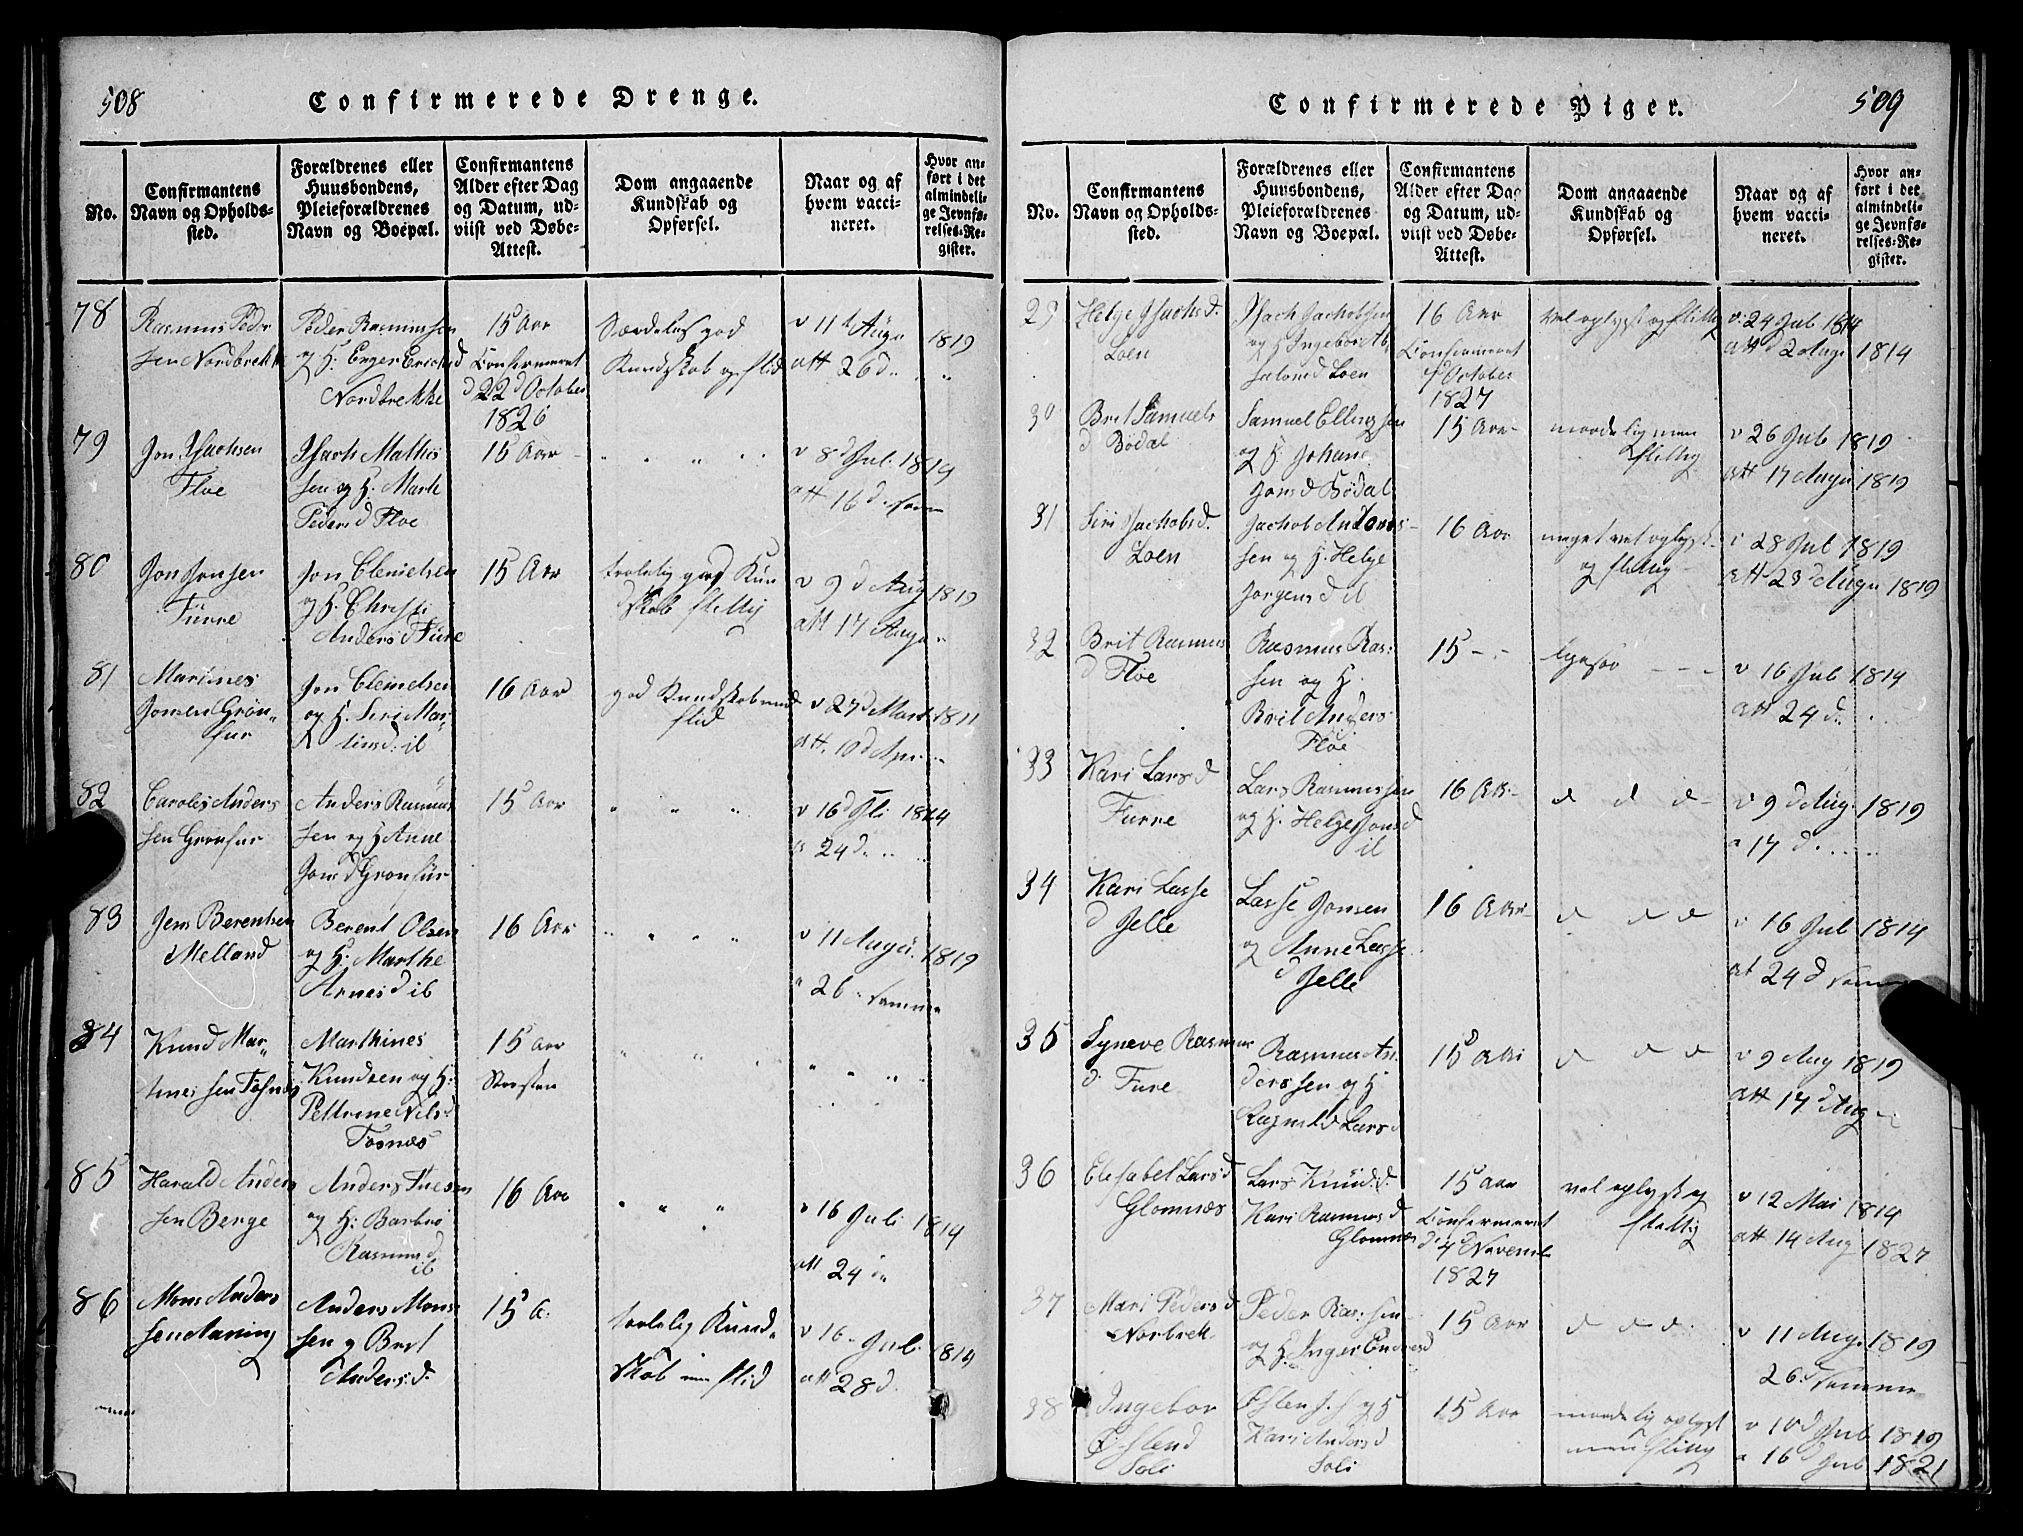 508
Confirmerede Drenge.
No.
Confirmantens Navn og Opholds-sted.
Forældrenes eller Huusbondens, Pleieforældrenes Navn og Boepæl.
Confirmantens Alder efter Dag og Datum, ud-viist ved Døbe-Attest.
Dom angaaende Kundskab og Opførsel.
Naar og af hvem vacci-neret.
Hvor an-ført i det almindeli-ge Jevnfø-relses-Re-gister.
78
Rasmus Peder
sen Nordbrekk
Peder Rasmussen
og H. Enger Erichsd
Nordbrekke
15 Aar
Confermeret
d 22d October
1826
Særdeles god
Kundskab og flid
v 11t Augu 1819
att 26 d.
79
Jon Isachsen
Floe
Isach Mathis
sen og H. Marte
Pedersd Floe
15 Aar
v 8d Jul. 1819
att 16 d. samme
80
Jon Jonsen
Furre
Jon Clemetsen
og H. Christi
Andersd Fure
15 Aar
temmelig god Kun
skab flittig
v 9 d Aug 1819
att 17 Augu
81
Martines
Jonsen Grøn
fur
Jon Clemetsen
og H. Siri Mar
tinsd. ib
16 Aar
god Kundskab med
flid
v 27d Mart 1811
att. 10 d Apr
82
Carolis Anders
sen Gronfur
Anders Rasmus
sen og H Anne
Jonsd Gronfur
15 Aar
v 16d Jli 1814
a 24 d.
83
Jens Berentsen
Melland
Berent Olsen
og H. Marthe
Arnesd ib
16 Aar
v 11 Augu. 1819
" 26 samme
84
Knud Mar
tines sen Tosnæs
Marthines
Knudsen og H.
Pettrine Nilsd
Tosnæs
15 Aar
85
Harald Anders
sen Berge
Anders Ivesen
og H: Barbro
Rasmusd
ib
16 Aar
v 16 Juli 1814
att 24 d
86
Mons Anders
sen Aaning
Anders Mons
sen og Brit
Andersd.
15 A.
Kund
skab men flid
v 16 Jul. 1814
att 28 d.
509
Confirmerede Piger.
No.
Confirmantens Navn og Opholds-sted.
Forældrenes eller Huusbondens, Pleieforældrenes Navn og Boepæl.
Confirmantens Alder efter Dag og Datum, ud-viist ved Døbe-Attest.
Dom angaaende Kundskab og Opførsel.
Naar og af hvem vacci-neret.
Hvor an-ført i det almindeli-ge Jevnfø-relses-Re-gister.
29
Helge Isachsd.
Loen
Isach Jachobsen
og H Ingebor Ab
salomsd Loen
16 Aar
Confermeret
October
1827
vel oplyst og flittig
v. 24 Jul 1814
att d 2 Augu 1814
30
Brit Samuels
d Bødal
Samuel Ellingsen
og H. Johane
Jonsd Bødal
15 Aar
maadelig men
flittig
v 26 Jul 1819
att 17 Augu 1819
31
Siri Jachobsd.
Loen
Jachob Andons
sen og H. Helge
Jorgensd ib
16 Aar
meget vel oplyst
og flittig
v 28 Jul 1819
att 23 d Augu 1819
32
Brit Rasmus
d Floe
Rasmus Ras:
sen og H.
Brit Anders
Floe
15
ligesaa
v 16 Jul 1814
att 24 d.
33
Kari Larsd
Furre
Lars Rasmussen
og H. Helge Jonsd
ib
16 Aar
d d d
v 9 d Aug. 1819
a 17 d.
34
Kari Lasse
d Jelle
Lasse Jonsen
og Anne Lasse
d Jelle
16 Aar
d d d
v 16 Jul 1814
at 24 d samme
35
Syneve Rasmus
d. Fure
Rasmus An
derssen og H
Ragnild Larsd
15 Aar
d d d
v 9 Aug 1819
att 17 d Aug
36
Elisabet Larsd
Glomnæs
Lars Knuds.
Kari Rasmusd
Glomnæs
15 Aar
Confermeret
d 4d Novemb
1827
vel oplyst og
flittig
v 12 Mai 1814
att 14 Aug 1827
37
Mari Pedersd
Norbrek
Peder Ras: sen
og H. Inger
15 Aar
d d d.
v 11 Augu 1819
26. samme
38
Ingebor
Soli
Kari Andersd
Soli
15 Aar
maadelig oplyst
men flittig
v 10 d Jul 1819
" 16 d Jul 1821